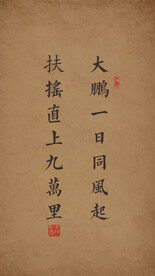 大鵬一日同風起
扶搖直上九萬里